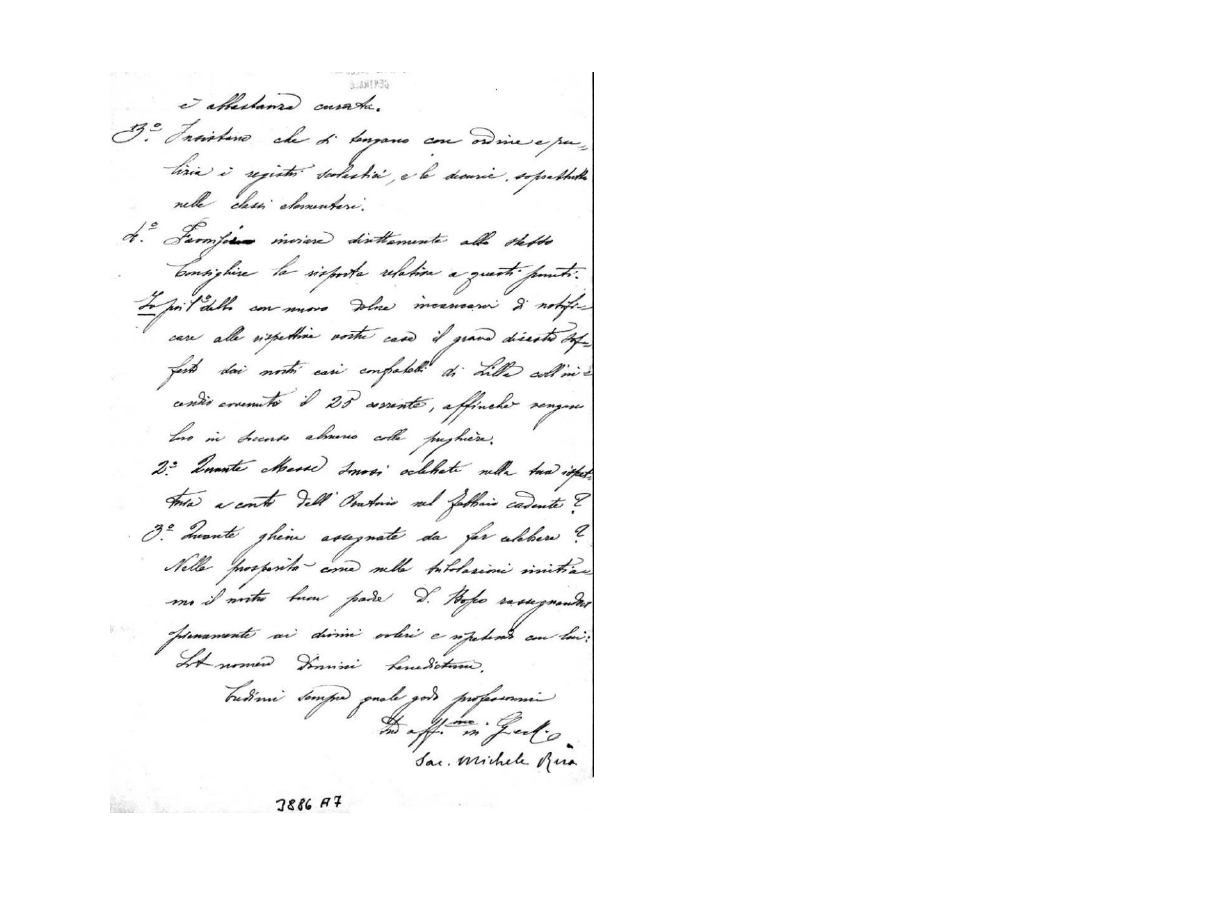 GENERALE
è abbastanza curata.
3.º Insistano che si tengano con ordine e pu=
lizia i registri scolastici, e le decurie, soprattutto
nelle classi elementari.
4.º inviare direttamente allo stesso
Consigliere la risposta relativa a questi punti.
Io poi 1º debbo con nuovo dolore incaricarvi di notifi=
care alle rispettive vostre case il grave disastro sof=
ferto dai nostri cari confratelli di Lilla coll'in=
cendio avvenuto il 25 corrente, affinchè vengano
loro in soccorso almeno colle preghiere.
2.º Quante Messe sonosi celebrate nella tua ispet=
toria a conto dell'Oratorio nel febbraio cadente?
3.º Quante ghene assegnate da far celebrare?
Nelle prosperità come nelle tribolazioni imitia=
mo il nostro buon padre D. Bosco rassegnandoci
pienamente ai divini voleri e ripetendo con lui:
Sit nomen Domini benedictum.
Credimi sempre quale godo professarmi
Tuo aff.mo in G. e M.
Sac. Michele Rua
3886 A7